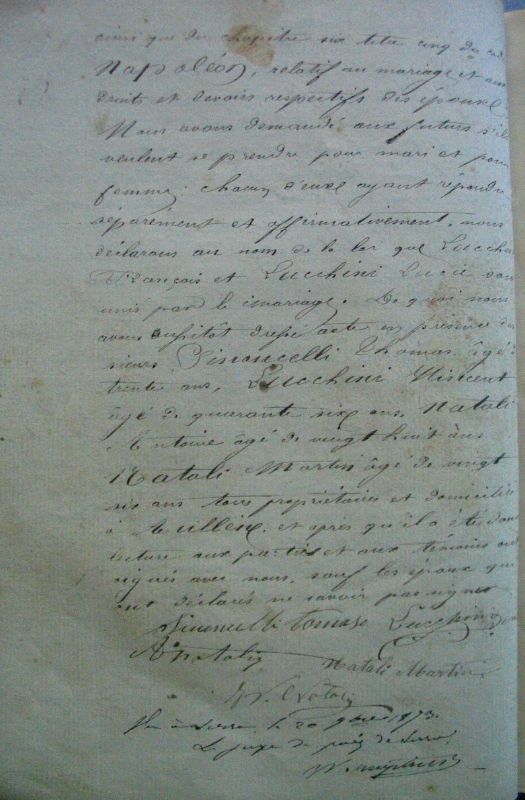 ainsi que du chapitre six titre cinq du cod
Napoléon, relatif au mariage et aux
droits et devoirs respectifs des époux
Nous avons demandé aux futurs s'il
veulent se prendre pour mari et pour
femme; chacun d'eux ayant répondu
séparement et affirmativement, nous
déclarons au nom de la loi que Lucchi
François et Lucchini Lucie sont
unis par le mariage. De quoi nous
avons aussitôt dressé acte en présence des
sieurs Simoncelli Thomas âgé
trente ans, Lucchini Vincent
âgé de quarante six ans, Natali
Antoine âgé de vingt huit ans
Natali Martin âgé de vingt
six ans tous propriétaires et domiciliés
à et après qu'il a été donné
lecture aux parties et aux témoins ont
signés avec nous, sauf les époux qui
ont déclarés ne savoir pas signer
Simoncelli tomaso Lucchini
A Natali Natali Martin
Vu à Serra, le 20 9bre 1873.
Le juge de paix de Serra